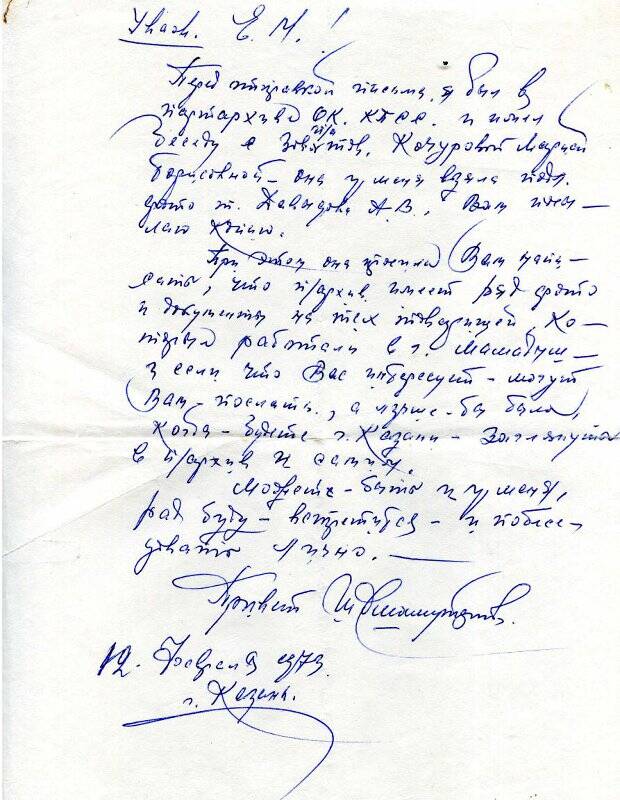 Уваж. Е. М.!
Перед отправкой письма, я был в
партархиве ОК. КПСС. и имел
беседу с Зав. п/а тов. Кочуровой Марией
Борисовной – она у меня взяла подл.
фото т. Давыдова А. В., Вам посы–
лаю копию.
При этом она просила Вам напи–
сать, что п/архив имеет ряд фото
и документы на тех товарищей, ко–
торые работали в г. Мамадыш –
и если что Вас интересует – могут
Вам – послать, а лучше бы было,
когда – будете г. Казани – заглянуть
в п/архив и самому.
Можете – быть и у меня,
рад буду – встретиться – и побесе–
довать лично. —
Привет
12. Февраля 1973.
г. Казань.